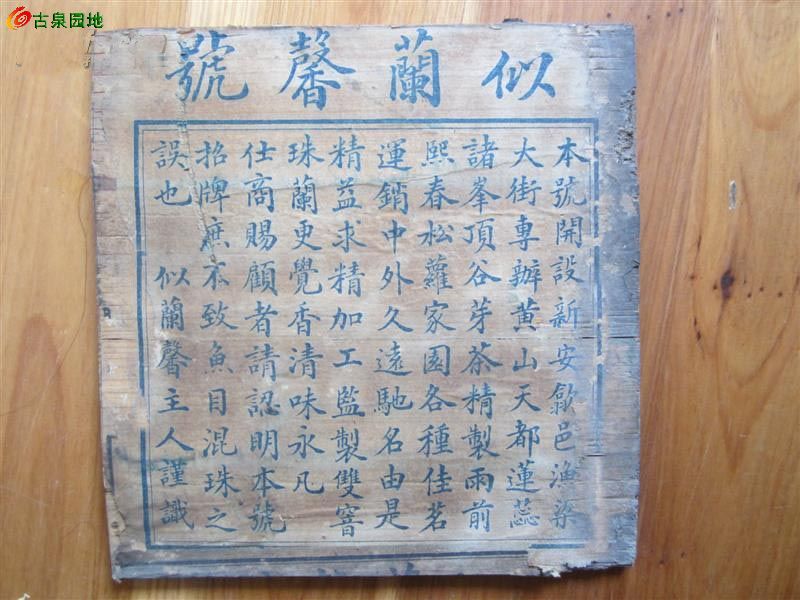 古泉园地
似蘭馨號
本號開設新安歙邑漁梁
大街專辦黄山天都蓮蕊
諸峯頂谷芽茶精製雨前
熙春松蘿家園各種佳茗
運銷中外久遠馳名由是
精益求精加工監製雙窨
珠蘭更覺香清味永凡
仕商賜顧者請認明本號
招牌庶不致魚目混珠之
誤也 似蘭馨主人謹識